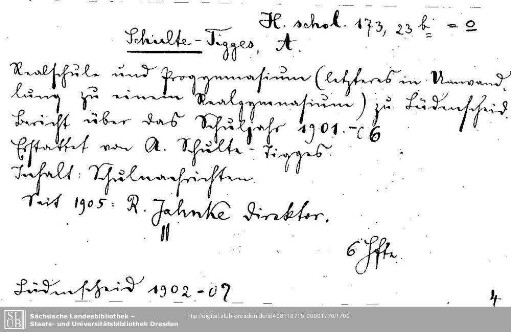 H. schol. 173, 23 b = o
Schulte-Tigges, A.
Realschule und Progymnasium (letzteres in Umwand-
lung zu einem Realgymnasium) zu Lüdenscheid.
Bericht über das Schuljahr 1901.-6
Erstattet von A. Schulte-Tigges.
Inhalt: Schulnachrichten.
Seit 1905: R. Jahnke Direktor.
6 Hfte.
Lüdenscheid 1902-07
4
SLUB
Sächsische Landesbibliothek –
Staats- und Universitätsbibliothek Dresden